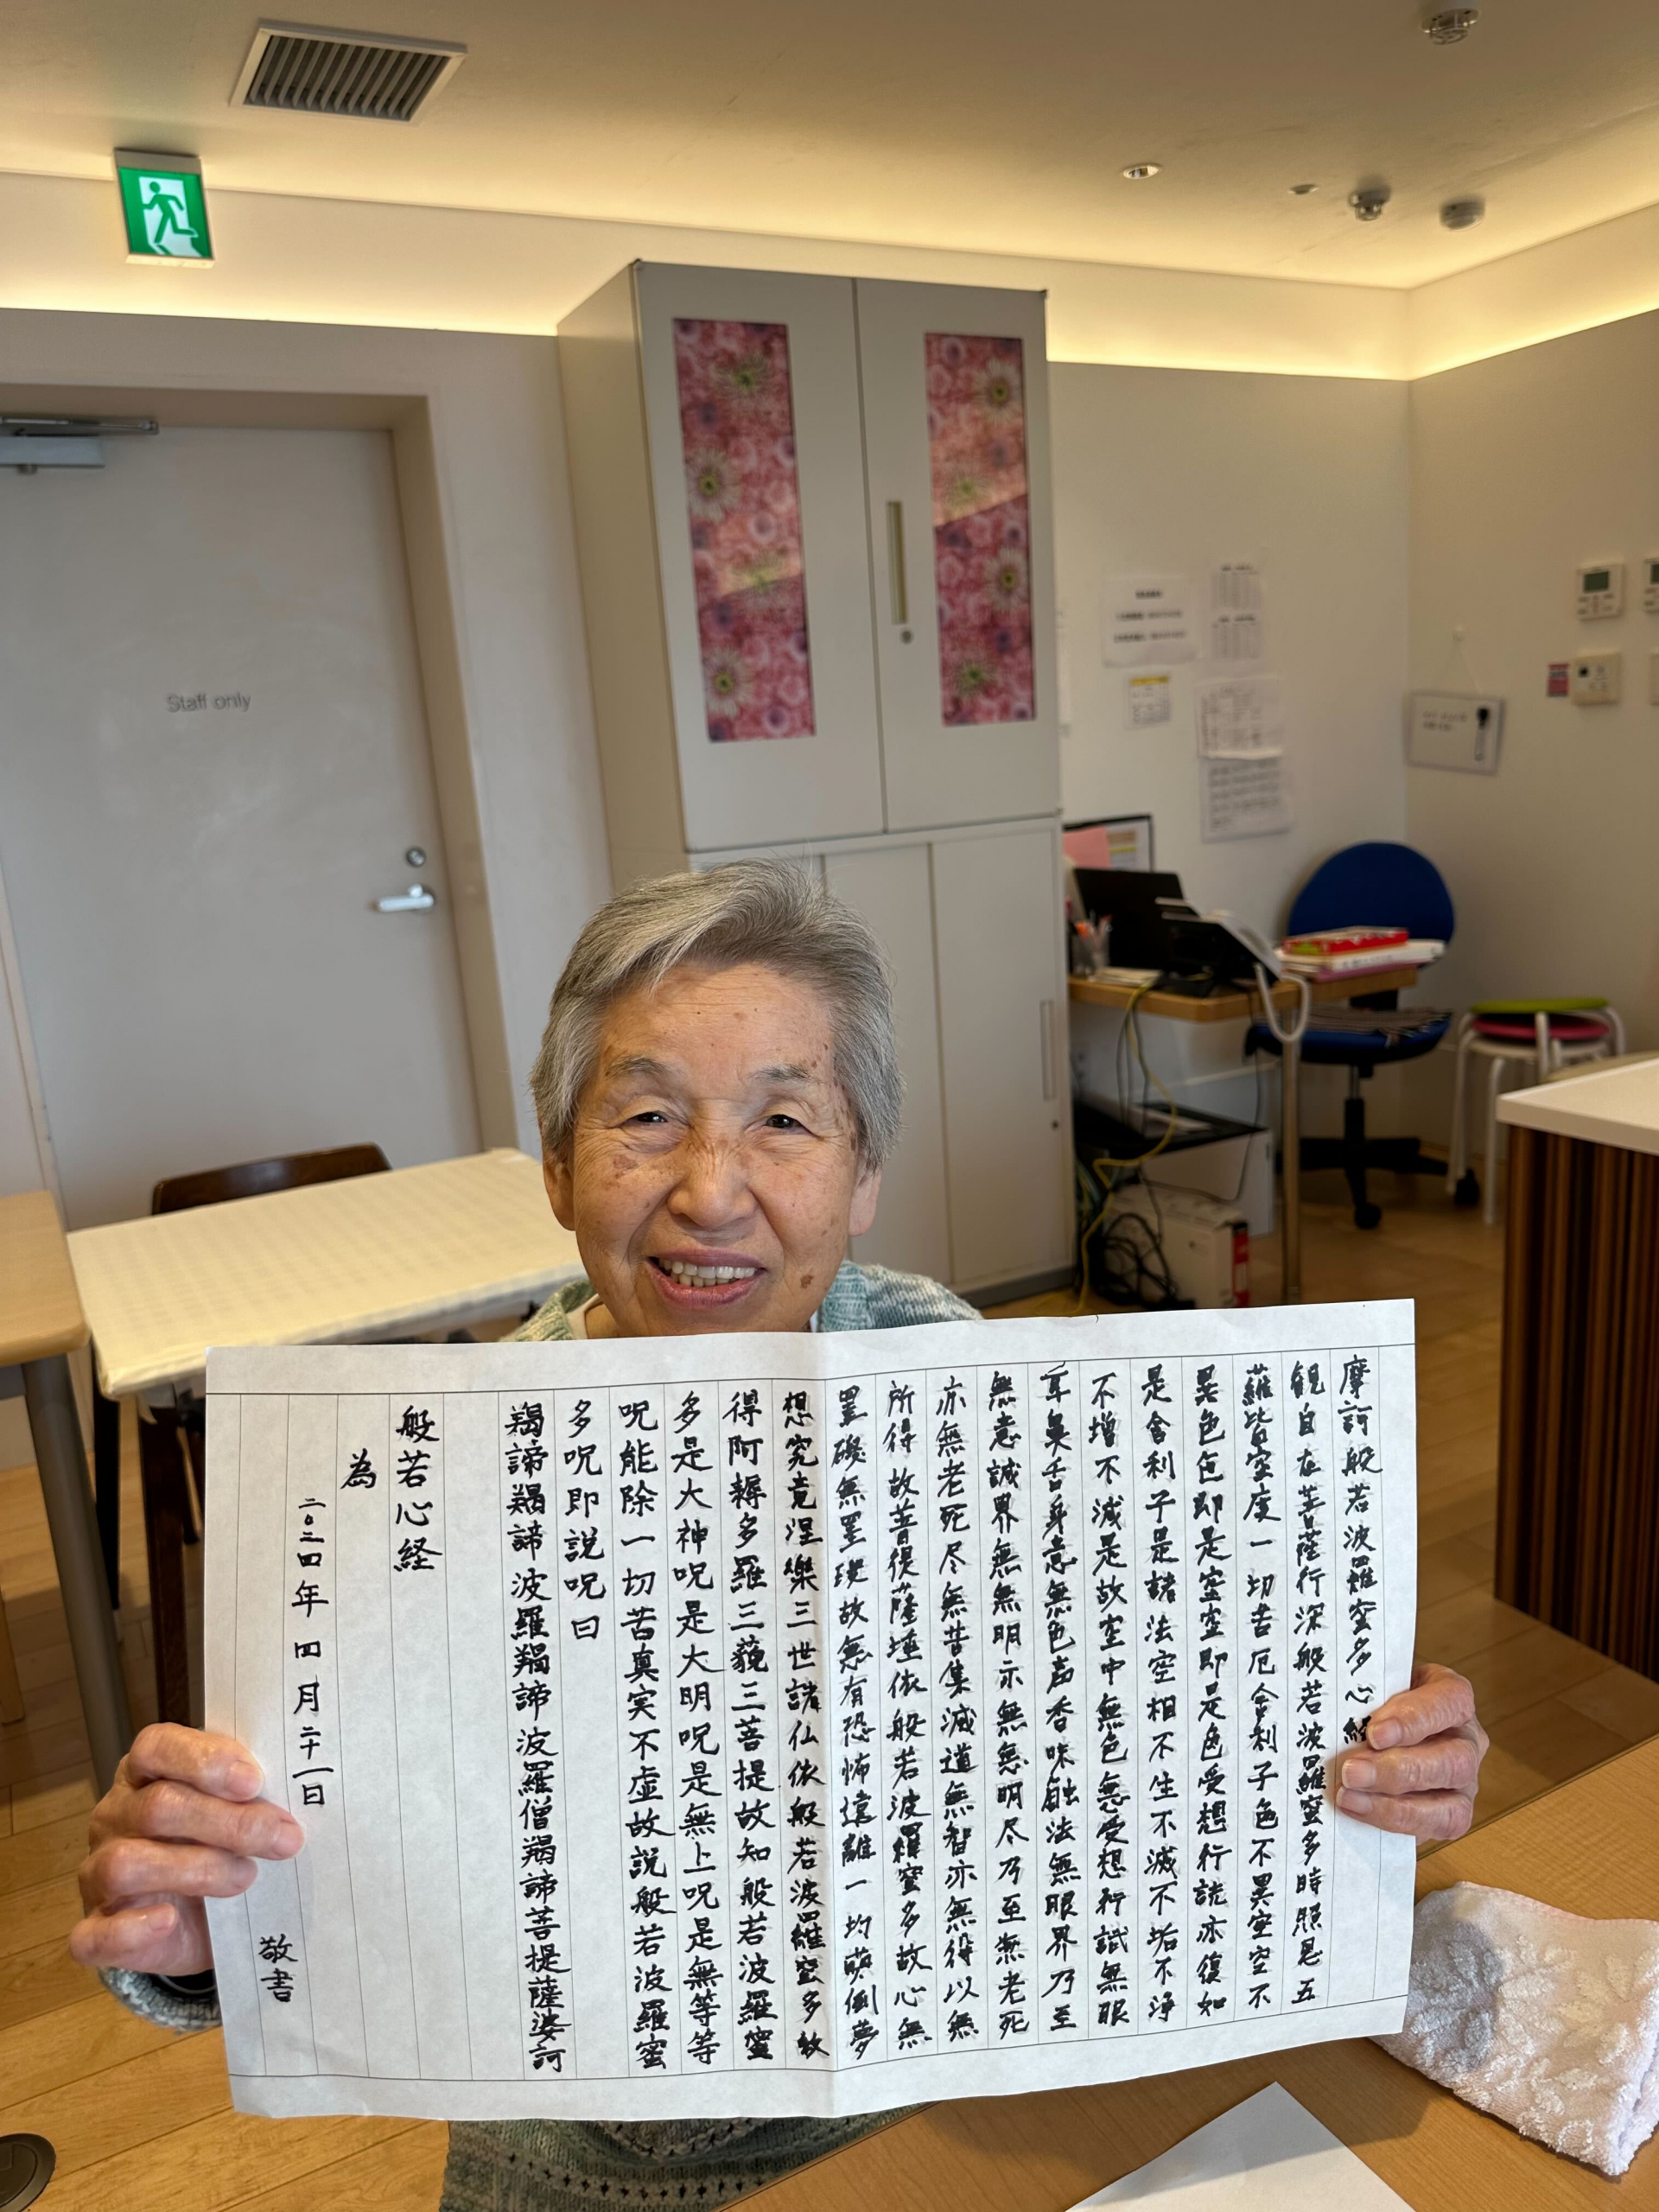 Staff only
摩訶般若波羅蜜多心経
観自在菩薩行深般若波羅蜜多時照見五
蘿皆空度一切苦厄舎利子色不異空空不
異色色即是空空即是色受想行識亦復如
是舎利子是諸法空相不生不滅不垢不浄
不増不減是故空中無色無受想行識無眼
耳鼻舌身意無色声香味触法無眼界乃至
無意識界無無明亦無無明尽乃至無老死
亦無老死尽無苦集滅道無智亦無得以無
所得故菩提薩埵依般若波羅蜜多故心無
罣礙無罣礙故無有恐怖遠離一切顛倒夢
想究竟涅槃三世諸仏依般若波羅蜜多故
得阿耨多羅三藐三菩提故知般若波羅蜜
多是大神呪是大明呪是無上呪是無等等
呪能除一切苦真実不虚故説般若波羅蜜
多呪即説呪曰
羯諦羯諦波羅羯諦波羅僧羯諦菩提薩婆訶
般若心経
為
二〇二四年四月二十一日
敬書